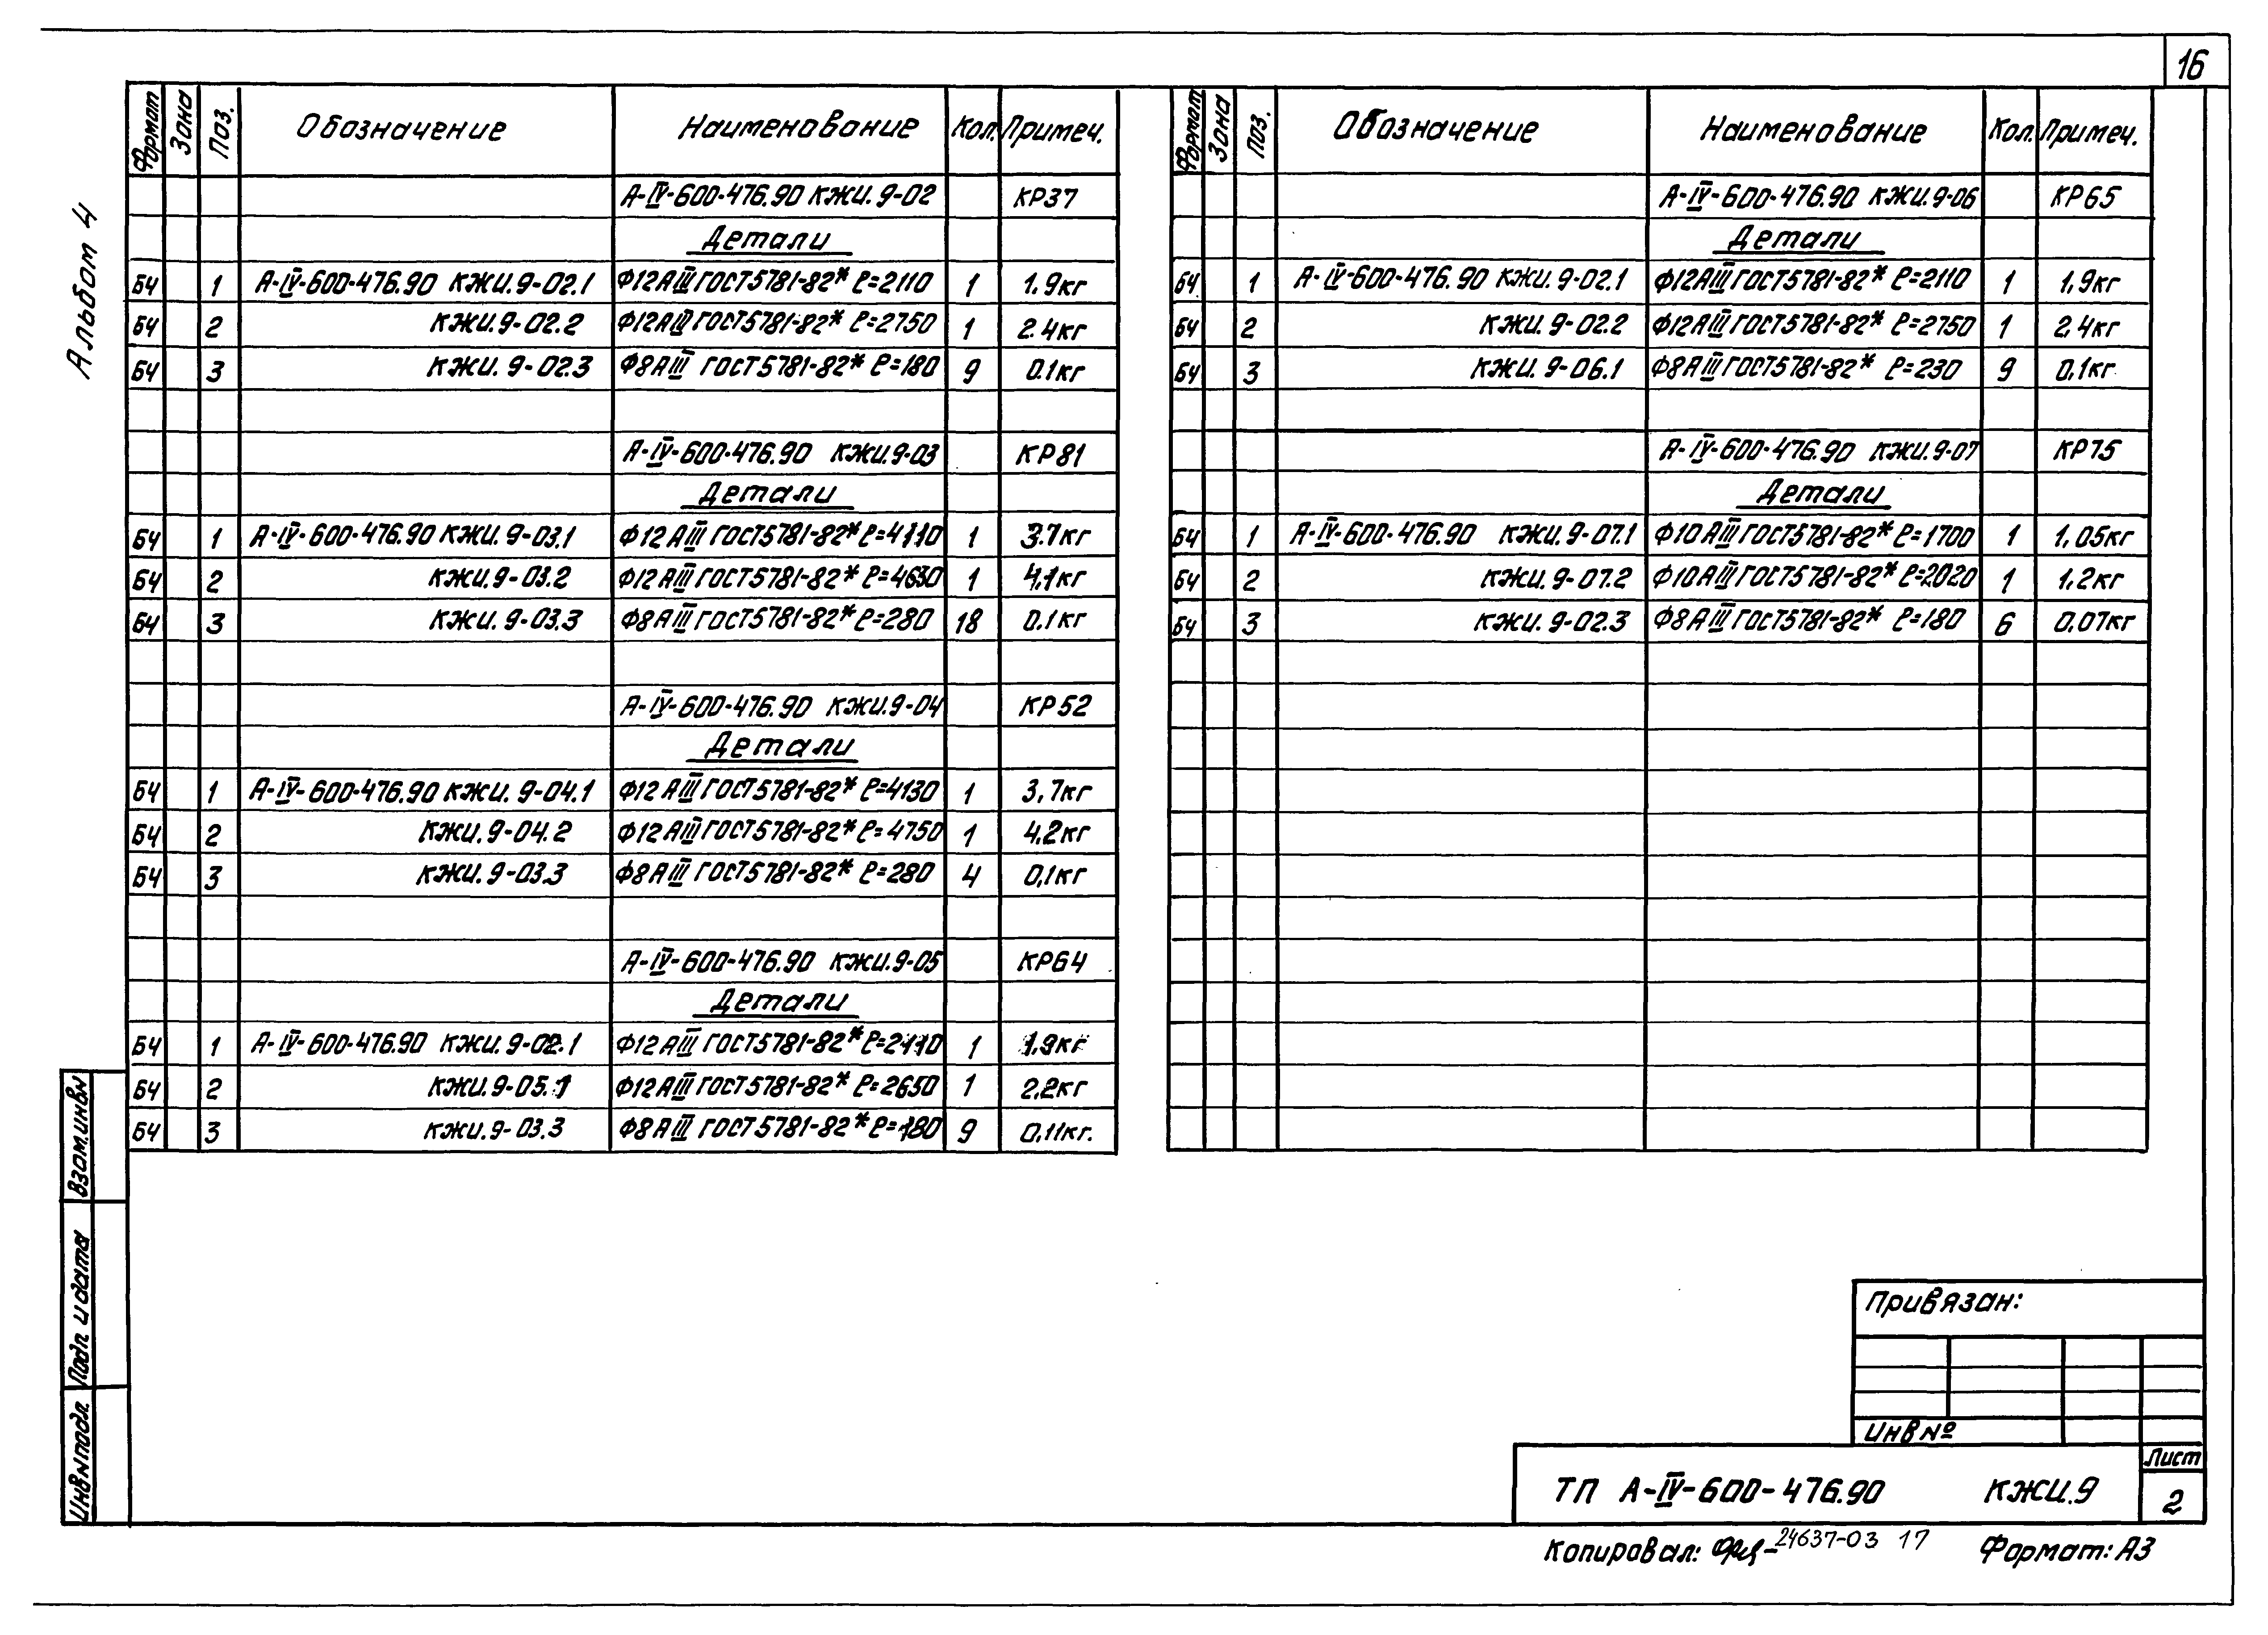 16
Альбом 4
Формат Зона Поз. Обозначение Наименование Кол. Примеч.
А-IV-600-476.90 КЖИ.9-02 КР37
Детали
БЧ 1 А-IV-600-476.90 КЖИ.9-02.1 Ф12АIII ГОСТ5781-82* ℓ=2110 1 1.9кг
БЧ 2 КЖИ.9-02.2 Ф12АIII ГОСТ5781-82* ℓ=2750 1 2.4кг
БЧ 3 КЖИ.9-02.3 Ф8АIII ГОСТ5781-82* ℓ=180 9 0.1кг
А-IV-600-476.90 КЖИ.9-03 КР81
Детали
БЧ 1 А-IV-600-476.90 КЖИ.9-03.1 Ф12АIII ГОСТ5781-82* ℓ=4110 1 3.7кг
БЧ 2 КЖИ.9-03.2 Ф12АIII ГОСТ5781-82* ℓ=4630 1 4,1кг
БЧ 3 КЖИ.9-03.3 Ф8АIII ГОСТ5781-82* ℓ=280 18 0.1кг
А-IV-600-476.90 КЖИ.9-04 КР52
Детали
БЧ 1 А-IV-600-476.90 КЖИ.9-04.1 Ф12АIII ГОСТ5781-82* ℓ=4130 1 3,7кг
БЧ 2 КЖИ.9-04.2 Ф12АIII ГОСТ5781-82* ℓ=4750 1 4,2кг
БЧ 3 КЖИ.9-03.3 Ф8АIII ГОСТ5781-82* ℓ=280 4 0,1кг
А-IV-600-476.90 КЖИ.9-05 КР64
Детали
БЧ 1 А-IV-600-476.90 КЖИ.9-02.1 Ф12АIII ГОСТ5781-82* ℓ=2110 1 1,9кг
БЧ 2 КЖИ.9-05.1 Ф12АIII ГОСТ5781-82* ℓ=2650 1 2,2кг
БЧ 3 КЖИ.9-03.3 Ф8АIII ГОСТ5781-82* ℓ=180 9 0,11кг.
Формат Зона Поз. Обозначение Наименование Кол. Примеч.
А-IV-600-476.90 КЖИ.9-06 КР65
Детали
БЧ 1 А-IV-600-476.90 КЖИ.9-02.1 Ф12АIII ГОСТ5781-82* ℓ=2110 1 1,9кг
БЧ 2 КЖИ.9-02.2 Ф12АIII ГОСТ5781-82* ℓ=2750 1 2,4кг
БЧ 3 КЖИ.9-06.1 Ф8АIII ГОСТ5781-82* ℓ=230 9 0,1кг
А-IV-600-476.90 КЖИ.9-07 КР75
Детали
БЧ 1 А-IV-600-476.90 КЖИ.9-07.1 Ф10АIII ГОСТ5781-82* ℓ=1700 1 1,05кг
БЧ 2 КЖИ.9-07.2 Ф10АIII ГОСТ5781-82* ℓ=2020 1 1.2кг
БЧ 3 КЖИ.9-02.3 Ф8АIII ГОСТ5781-82* ℓ=180 6 0,07кг
Взам.инвN
Подп. и дата
ИнвNподл.
Привязан:
Инв№
ТП А-IV-600-476.90 КЖИ.9
Лист
2
Копировал: 24637-03 17 Формат: А3